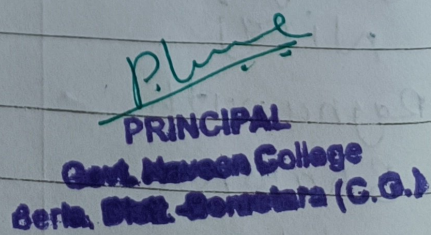 PRINCIPAL
Govt. Naveen College
Berla, Distt.-Bemetara (C.G.)